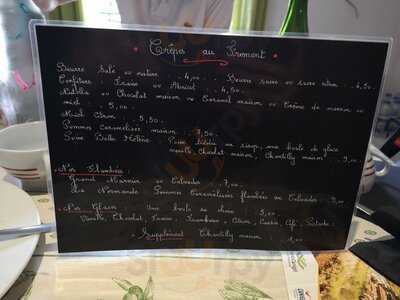 Crêpes au Froment
Beurre salé ou nature .. 4,00 .. Beurre sucre ou sucre citron .. 4,50
Confiture Fraise ou Abricot .. 4,50
Nutella ou Chocolat maison ou Caramel maison ou Crème de marron ou
miel ... 5,00
Miel Citron .. 5,50
Pommes Caramélisées maison .. 7,50
Poire Belle Hélène Poire sirop, une boule de glace
vanille, Chocolat maison, Chantilly maison .. 9,00
Nos Flambées
Grand Marnier ou Calvados .. 7,00
La Normande Pommes Caramélisées flambées au Calvados
Nos Glaces Une boule au choix 3,00
Vanille, Chocolat, Fraise, Citron, Café, Pistache
Supplément Chantilly maison 1,00